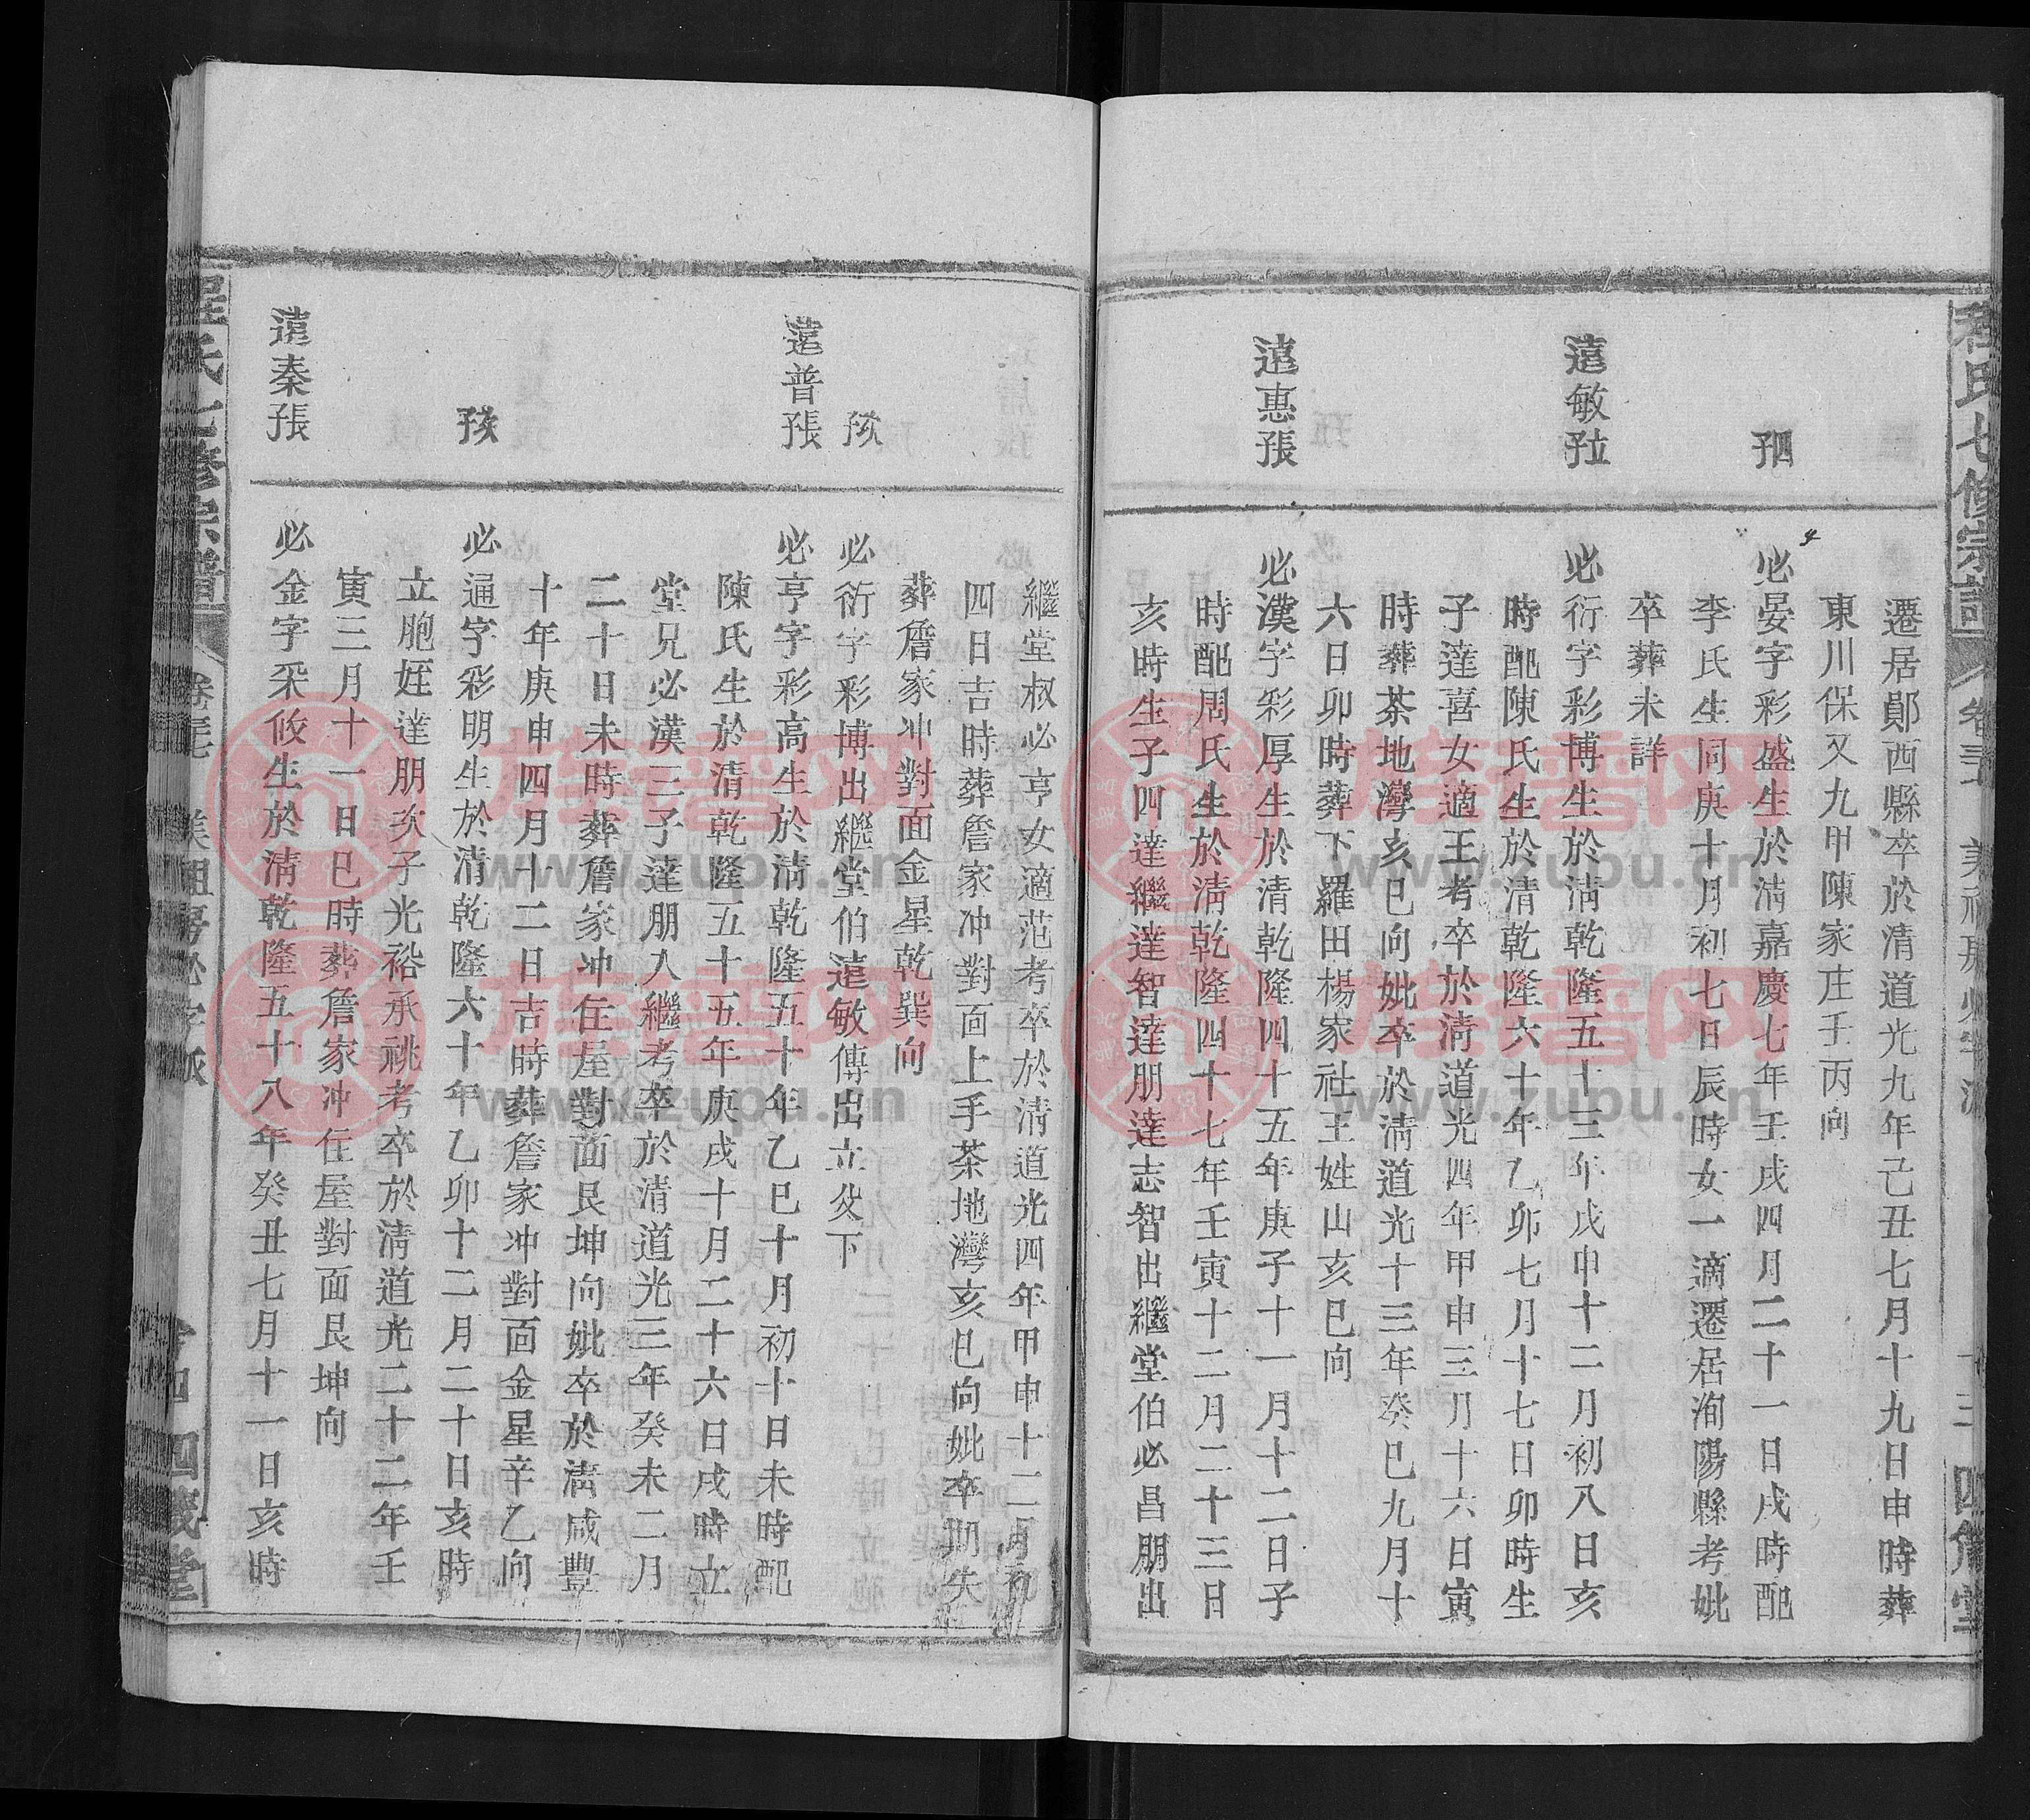 程氏七修宗譜
美祖房必字派
遷居鄖西縣卒於清道光九年己丑七月十九日申時葬
東川保又九甲陳家庄壬丙向
必晏字彩盛生於清嘉慶七年壬戌四月二十一日戌時配
李氏生同庚十月初七日辰時女一適遷居洵陽縣考妣
卒葬未詳
遠敏
必衍字彩博生於清乾隆五十三年戊申十二月初八日亥
時配陳氏生於清乾隆六十年乙卯七月十七日卯時生
子達喜女適王考卒於清道光四年甲申三月十六日寅
時葬茶地灣亥巳向妣卒於清道光十三年癸巳九月十
六日卯時葬下羅田楊家社王姓山亥巳向
遠惠張
必漢字彩厚生於清乾隆四十五年庚子十一月十二日子
時配周氏生於清乾隆四十七年壬寅十二月二十三日
亥時生子四達繼達智達朋達志智出繼堂伯必昌朋出
繼堂叔必亨女適范考卒於清道光四年甲申十二月初
四日吉時葬詹家冲對面上手茶地灣亥巳向妣卒期失
葬詹家冲對面金星乾巽向
必衍字彩博出繼堂伯遠敏傳出立父下
遠普張
必亨字彩高生於清乾隆五十年乙巳十月初十日未時配
陳氏生於清乾隆五十五年庚戌十月二十六日戌時立
堂兄必漢三子達朋入繼考卒於清道光三年癸未二月
二十日未時葬詹家冲住屋對面艮坤向妣卒於清咸豐
十年庚申四月十二日吉時葬詹家冲對面金星辛乙向
必通字彩明生於清乾隆六十年乙卯十二月二十日亥時
立胞姪達朋次子光裕承祧考卒於清道光二十二年壬
寅三月十一日巳時葬詹家冲住屋對面艮坤向
遠秦張
必金字采攸生於清乾隆五十八年癸丑七月十一日亥時
氏七修宗譜
美祖房必字派
四箴堂
族譜网
www.zupu.cn
族譜网
www.zupu.cn
族譜网
www.zupu.cn
族譜网
www.zupu.cn